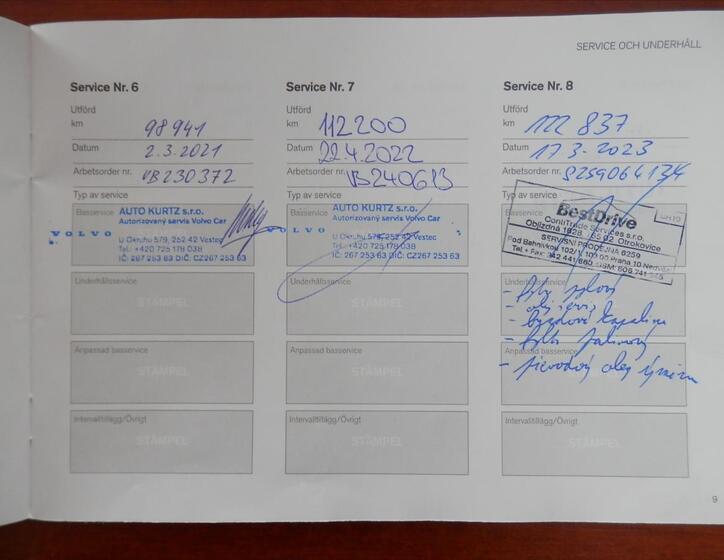 SERVICE OCH UNDERHÅLL
Service Nr. 6
Utförd
km 98941
Datum 2.3.2021
Arbetsorder nr. VB230372
Typ av service
Basservice
AUTO KURTZ s.r.o.
Autorizovaný servis Volvo Car
VOLVO
U Okruhu 579, 252 42 Vestec
Tel.: +420 725 178 038
IČ: 267 253 63 DIČ: CZ267 253 63
Underhållsservice
STÄMPEL
Anpassad basservice
STÄMPEL
Intervalltillägg/Övrigt
STÄMPEL
Service Nr. 7
Utförd
km 112200
Datum 22.4.2022
Arbetsorder nr. VB240613
Typ av service
Basservice
AUTO KURTZ s.r.o.
Autorizovaný servis Volvo Car
VOLVO
U Okruhu 579, 252 42 Vestec
Tel.: +420 725 178 038
IČ: 267 253 63 DIČ: CZ267 253 63
Underhållsservice
STÄMPEL
Anpassad basservice
STÄMPEL
Intervalltillägg/Övrigt
STÄMPEL
Service Nr. 8
Utförd
km 837
Datum 17.3.2023
Arbetsorder nr.
Typ av service
Basservice
BestDrive
ContiTrade Services s.r.o.
Objízdná 1628, 765 02 Otrokovice
SERVISNÍ PRODEJNA 6259
Pod Bahnivkou 102/1, 107 00 Praha 10
Underhållsservice
Anpassad basservice
Intervalltillägg/Övrigt
STÄMPEL
9